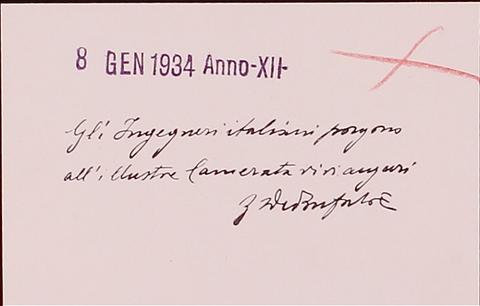 8 GEN 1934 Anno-XII-
Gli Ingegneri italiani porgono
all'illustre Camerata vivi auguri